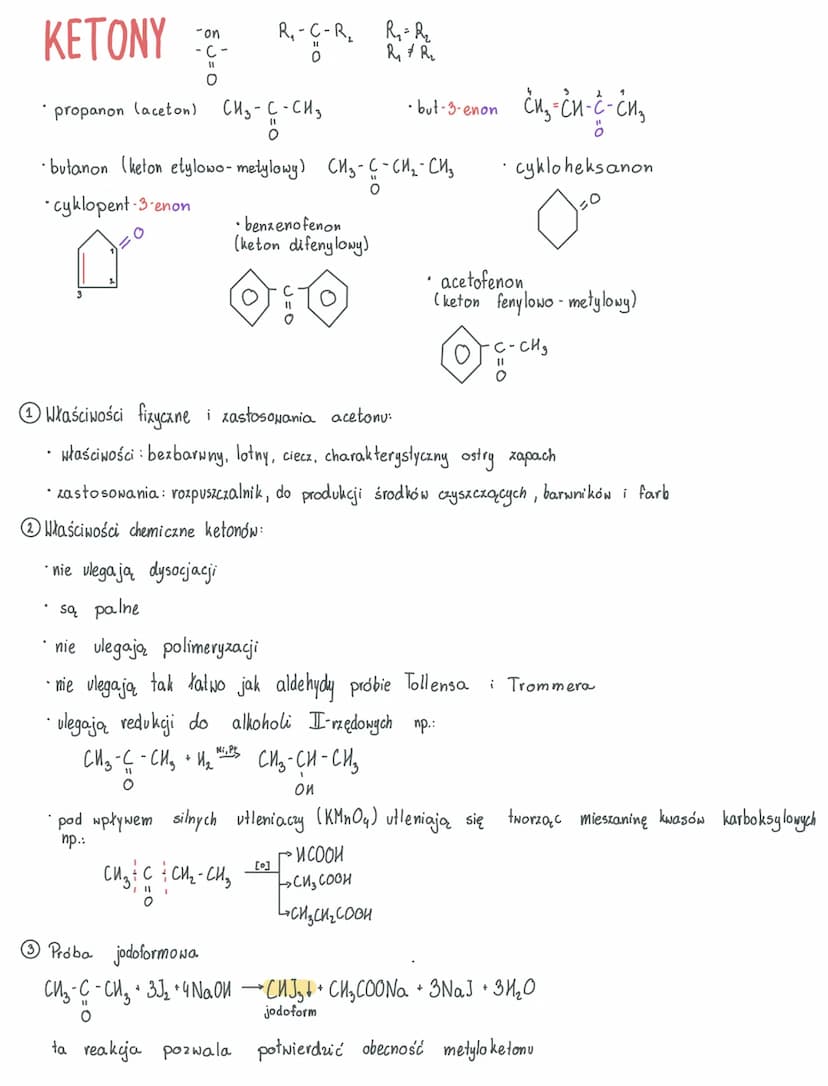 KETONY
-on
-C-
=
O
R₁-C-R₂
=
O
R₁=R₂
R₁≠R₂
· propanon (aceton) CH₃-C-CH₃
=
O
· but-3-enon
4 3 2 1
CH₃=CH-C-CH₃
=
O
· butanon (keton etylowo-metylowy) CH₃-C-CH₂-CH₃
=
O
· cykloheksanon
=O
· cyklopent-3-enon
=O
1
2
3
· benzenofenon
(keton difenylowy)
C
=
O
· acetofenon
(keton fenylowo-metylowy)
C-CH₃
=
O
① Właściwości fizyczne i zastosowania acetonu:
· właściwości: bezbarwny, lotny, ciecz, charakterystyczny ostry zapach
· zastosowania: rozpuszczalnik, do produkcji środków czyszczących, barwników i farb
② Właściwości chemiczne ketonów:
· nie ulegają dysocjacji
· są palne
· nie ulegają polimeryzacji
· nie ulegają tak łatwo jak aldehydy próbie Tollensa i Trommera
· ulegają redukcji do alkoholi II-rzędowych np.:
CH₃-C-CH₃ + H₂ Ni,Pt → CH₃-CH-CH₃
=
O
OH
· pod wpływem silnych utleniaczy (KMnO₄) utleniają się tworząc mieszaninę kwasów karboksylowych
np.:
CH₃ C CH₂-CH₃ [O]
=
O
→ HCOOH
→ CH₃COOH
→ CH₃CH₂COOH
③ Próba jodoformowa
CH₃-C-CH₃ + 3J₂ + 4NaOH → CHJ₃↓ + CH₃COONa + 3NaJ + 3H₂O
=
O
jodoform
ta reakcja pozwala potwierdzić obecność metyloketonu